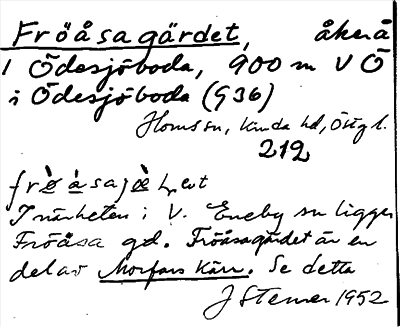 Fröåsagärdet, åker å
1 Ödesjöboda, 900 m V Ö
i Ödesjöboda (G36)
Horns sn, Kinda hd, Östg l.
212
I närheten i V. Eneby sn ligger
Fröåsa gd. Fröåsagärdet är en
del av Morfars Kärr. Se detta
J Stemer 1952